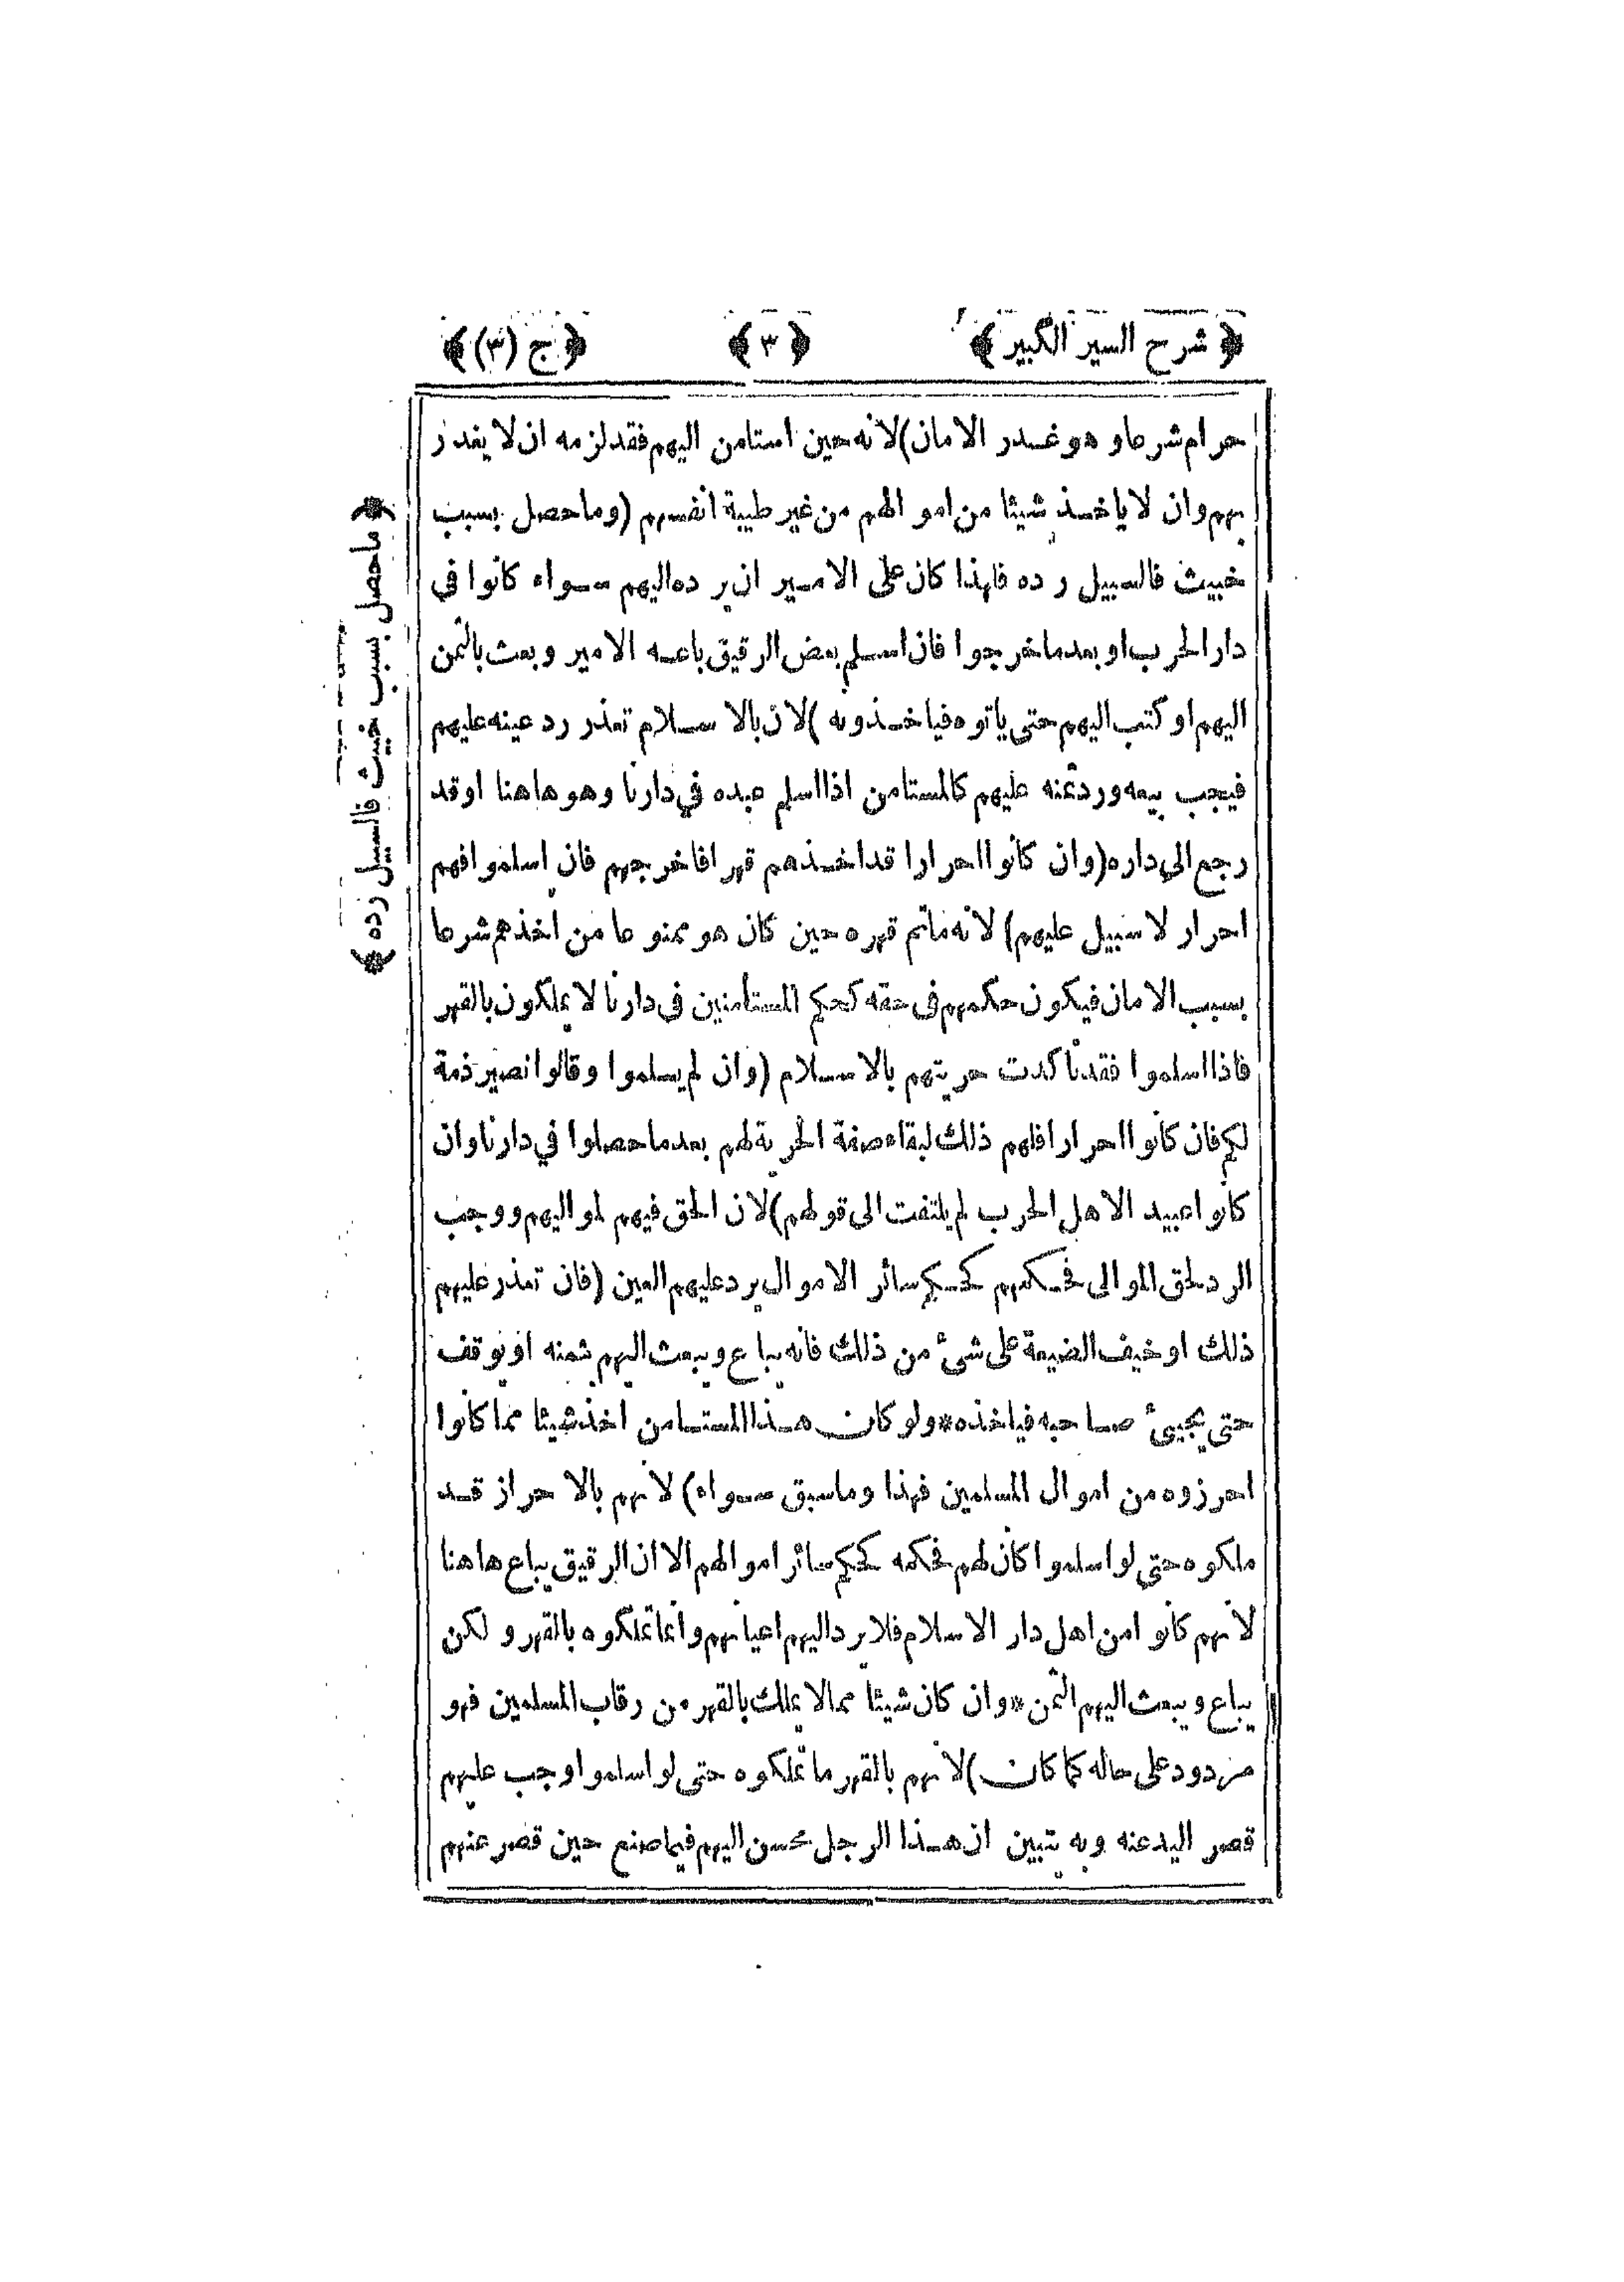 ﴿ شرح السير الكبير ﴾ ﴿ ٣ ﴾ ﴿ ج (٣) ﴾
حرام شرعا و هو غدر الامان) لانه حين استامن اليهم فقد لزمه ان لا يغدر
بهم وان لا ياخذ شيئا من اموالهم من غير طيبة انفسهم (وما حصل بسبب
خبيث فالسبيل رده فلهذا كان على الامير ان يرده اليهم سواء كانوا في
دار الحرب او بعد ما خرجوا فان اسلم بعض الرقيق باعه الامير وبعث بالثمن
اليهم او كتب اليهم حتى ياتوه فياخذونه) لان بالاسلام تعذر رد عينه عليهم
فيجب بيعه ورد ثمنه عليهم كالمستامن اذا اسلم عبده في دارنا وهو هاهنا او قد
رجع الى داره (وان كانوا احرارا قد اخذهم قهرا فاخرجهم فان اسلموا فهم
احرار لا سبيل عليهم) لانه ماتم قهره حين كان هو ممنوعا من اخذهم شرعا
بسبب الامان فيكون حكمهم فى حقه كحكم المستأمنين فى دارنا لا يملكون بالقهر
فاذا اسلموا فقد تأكدت حريتهم بالاسلام (وان لم يسلموا وقالوا نصير ذمة
لكم فان كانوا احرارا فلهم ذلك لبقاء صفة الحرية لهم بعد ما حصلوا في دارنا وان
كانوا عبيدا لاهل الحرب لم يلتفت الى قولهم) لان الحق فيهم لمواليهم ووجب
الرد لحق الموالى فحكمهم كحكم سائر الاموال يرد عليهم العين (فان تعذر عليهم
ذلك او خيف الضيعة على شئ من ذلك فانه يباع ويبعث اليهم بثمنه او يوقف
حتى يجيئ صاحبه فياخذه * ولو كان هذا المستامن اخذ شيئا مما كانوا
احرزوه من اموال المسلمين فهذا وما سبق سواء) لانهم بالاحراز قد
ملكوه حتى لو اسلموا كان لهم فحكمه كحكم سائر اموالهم الا ان الرقيق يباع هاهنا
لانهم كانوا من اهل دار الاسلام فلا يرد اليهم اعيانهم وانما تملكوه بالقهر و لكن
يباع ويبعث اليهم الثمن * وان كان شيئا مما لا يملك بالقهر من رقاب المسلمين فهو
مردود على حاله كما كان) لانهم بالقهر ما تملكوه حتى لو اسلموا وجب عليهم
قصر اليد عنه وبه يتبين ان هذا الرجل محسن اليهم فيما صنع حين قصر عنهم
﴿ ما حصل بسبب خبيث فالسبيل رده ﴾